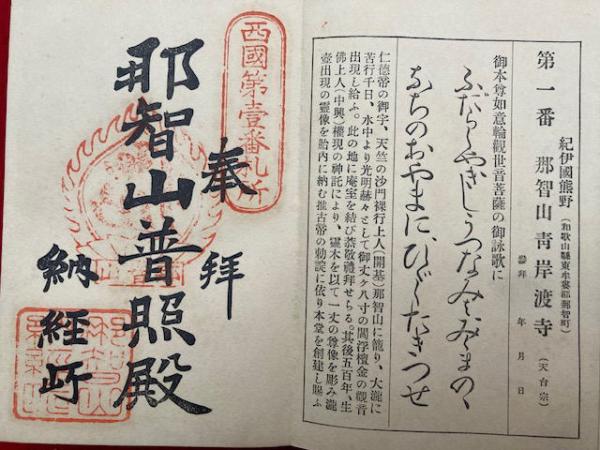 第一番 紀伊國熊野(和歌山縣東牟婁郡那智町)
那智山青岸渡寺(天台宗)
參拜 年 月 日
御本尊如意輪觀世音菩薩の御詠歌に
ふだらくやきしうつなみはみくまのゝ
なちのおやまに、ひゞくたきつせ
仁徳帝の御字、天竺の沙門裸行上人(開基)那智山に籠り、大瀧に
苦行千日、水中より光明赫々として御丈ケ八寸の閻浮檀金の觀音
出現し給ふ。此の地に庵室を結び恭敬禮拜せらる。其後五百年、生
佛上人(中興)權現の神託により、靈木を以て一丈の尊像を彫み瀧
壺出現の靈像を胎内に納む推古帝の勅談に依り本堂を創建し賜ふ
西國第壹番札所
奉拜
那智山普照殿
納經所